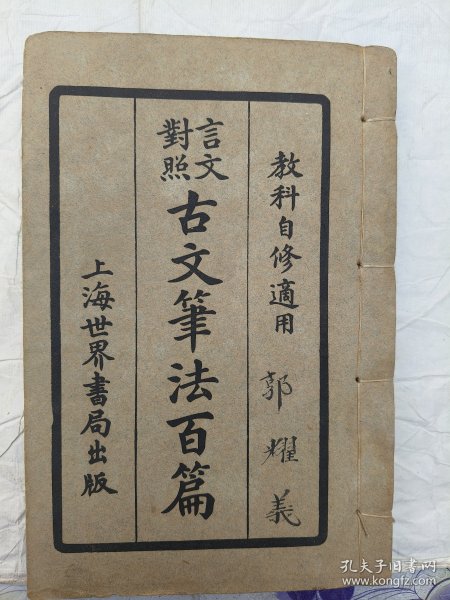 教科自修適用
郭耀義
言文
對照
古文筆法百篇
上海世界書局出版
孔夫子旧书网
www.kongfz.com